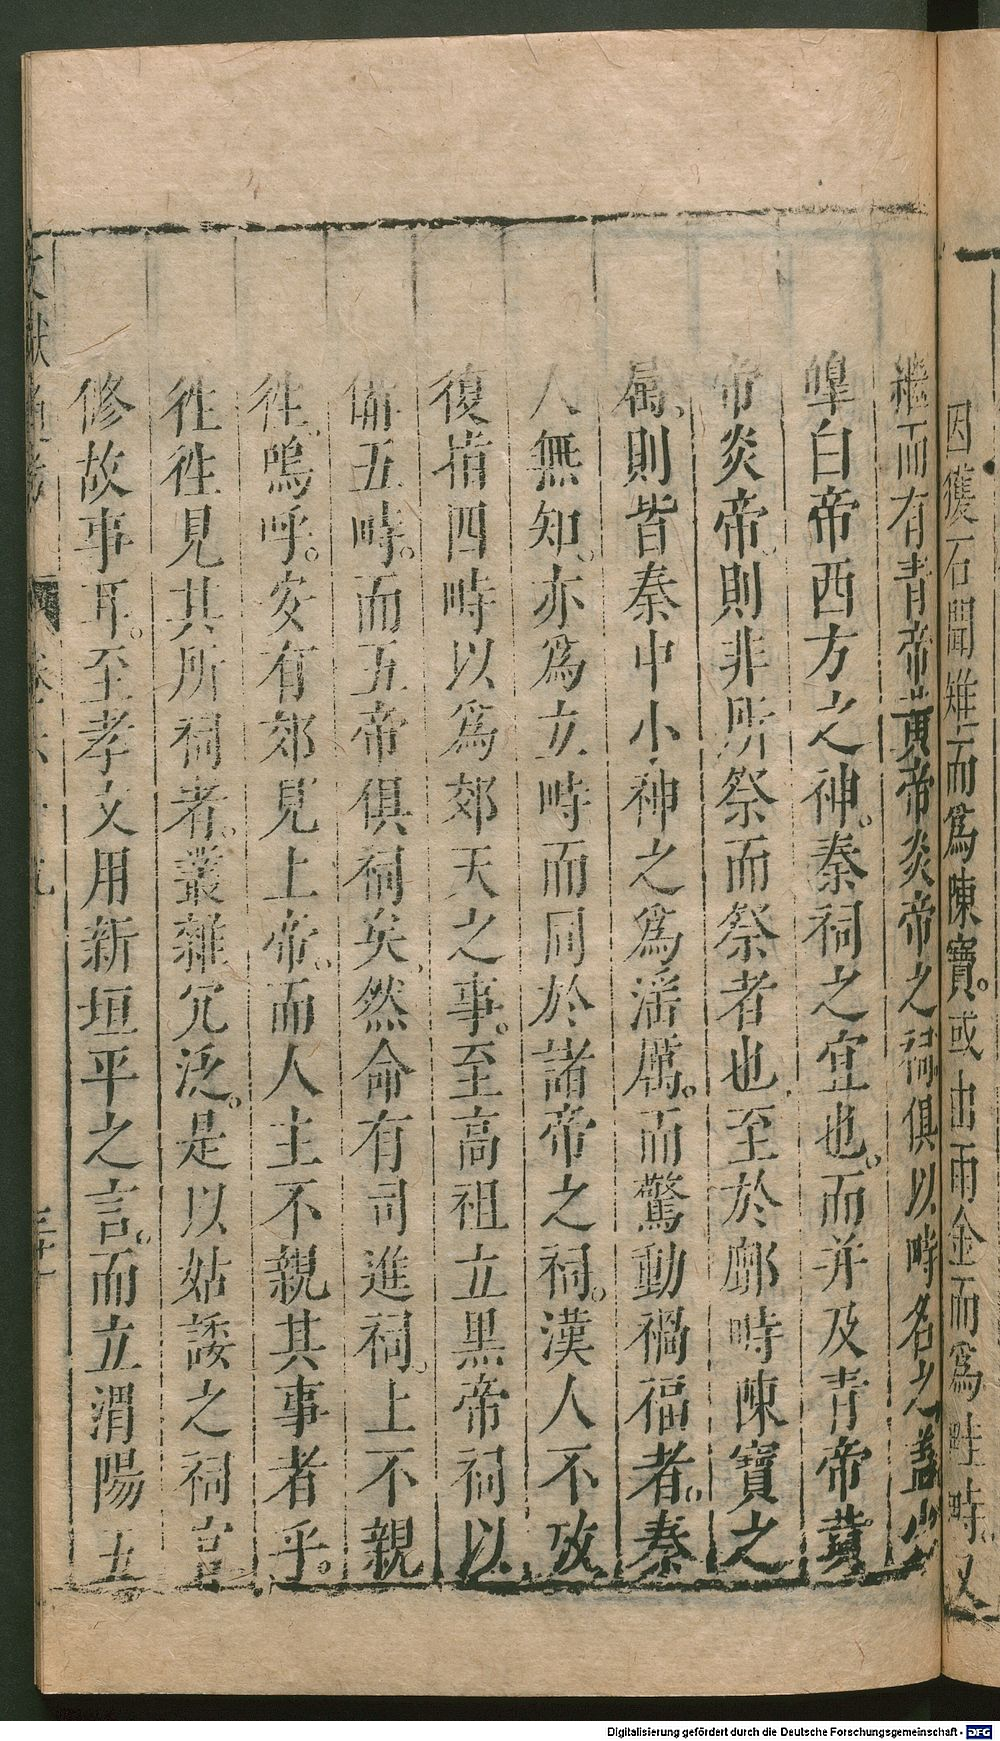 因獲石聞雉而為陳寶。或由雨金而為畦畤。又
繼而有青帝黃帝炎帝之祠俱以畤名之蓋少
皞白帝西方之神。秦祠之宜也。而并及青帝黃
帝炎帝。則非所祭而祭者也至於鄜畤陳寶之
屬。則皆秦中小神之為淫厲。而驚動禍福者。秦
人無知。亦為立畤而同於諸帝之祠。漢人不攷
復指四畤以為郊天之事。至高祖立黑帝祠以
備五畤。而五帝俱祠矣然命有司進祠。上不親
徃。嗚呼。安有郊見上帝。而人主不親其事者乎。
徃徃見其所祠者。叢雜冗泛。是以姑諉之祠官
修故事耳。至孝文用新垣平之言。而立渭陽五
文獻通考 卷六十九 三十
Digitalisierung gefördert durch die Deutsche Forschungsgemeinschaft - DFG